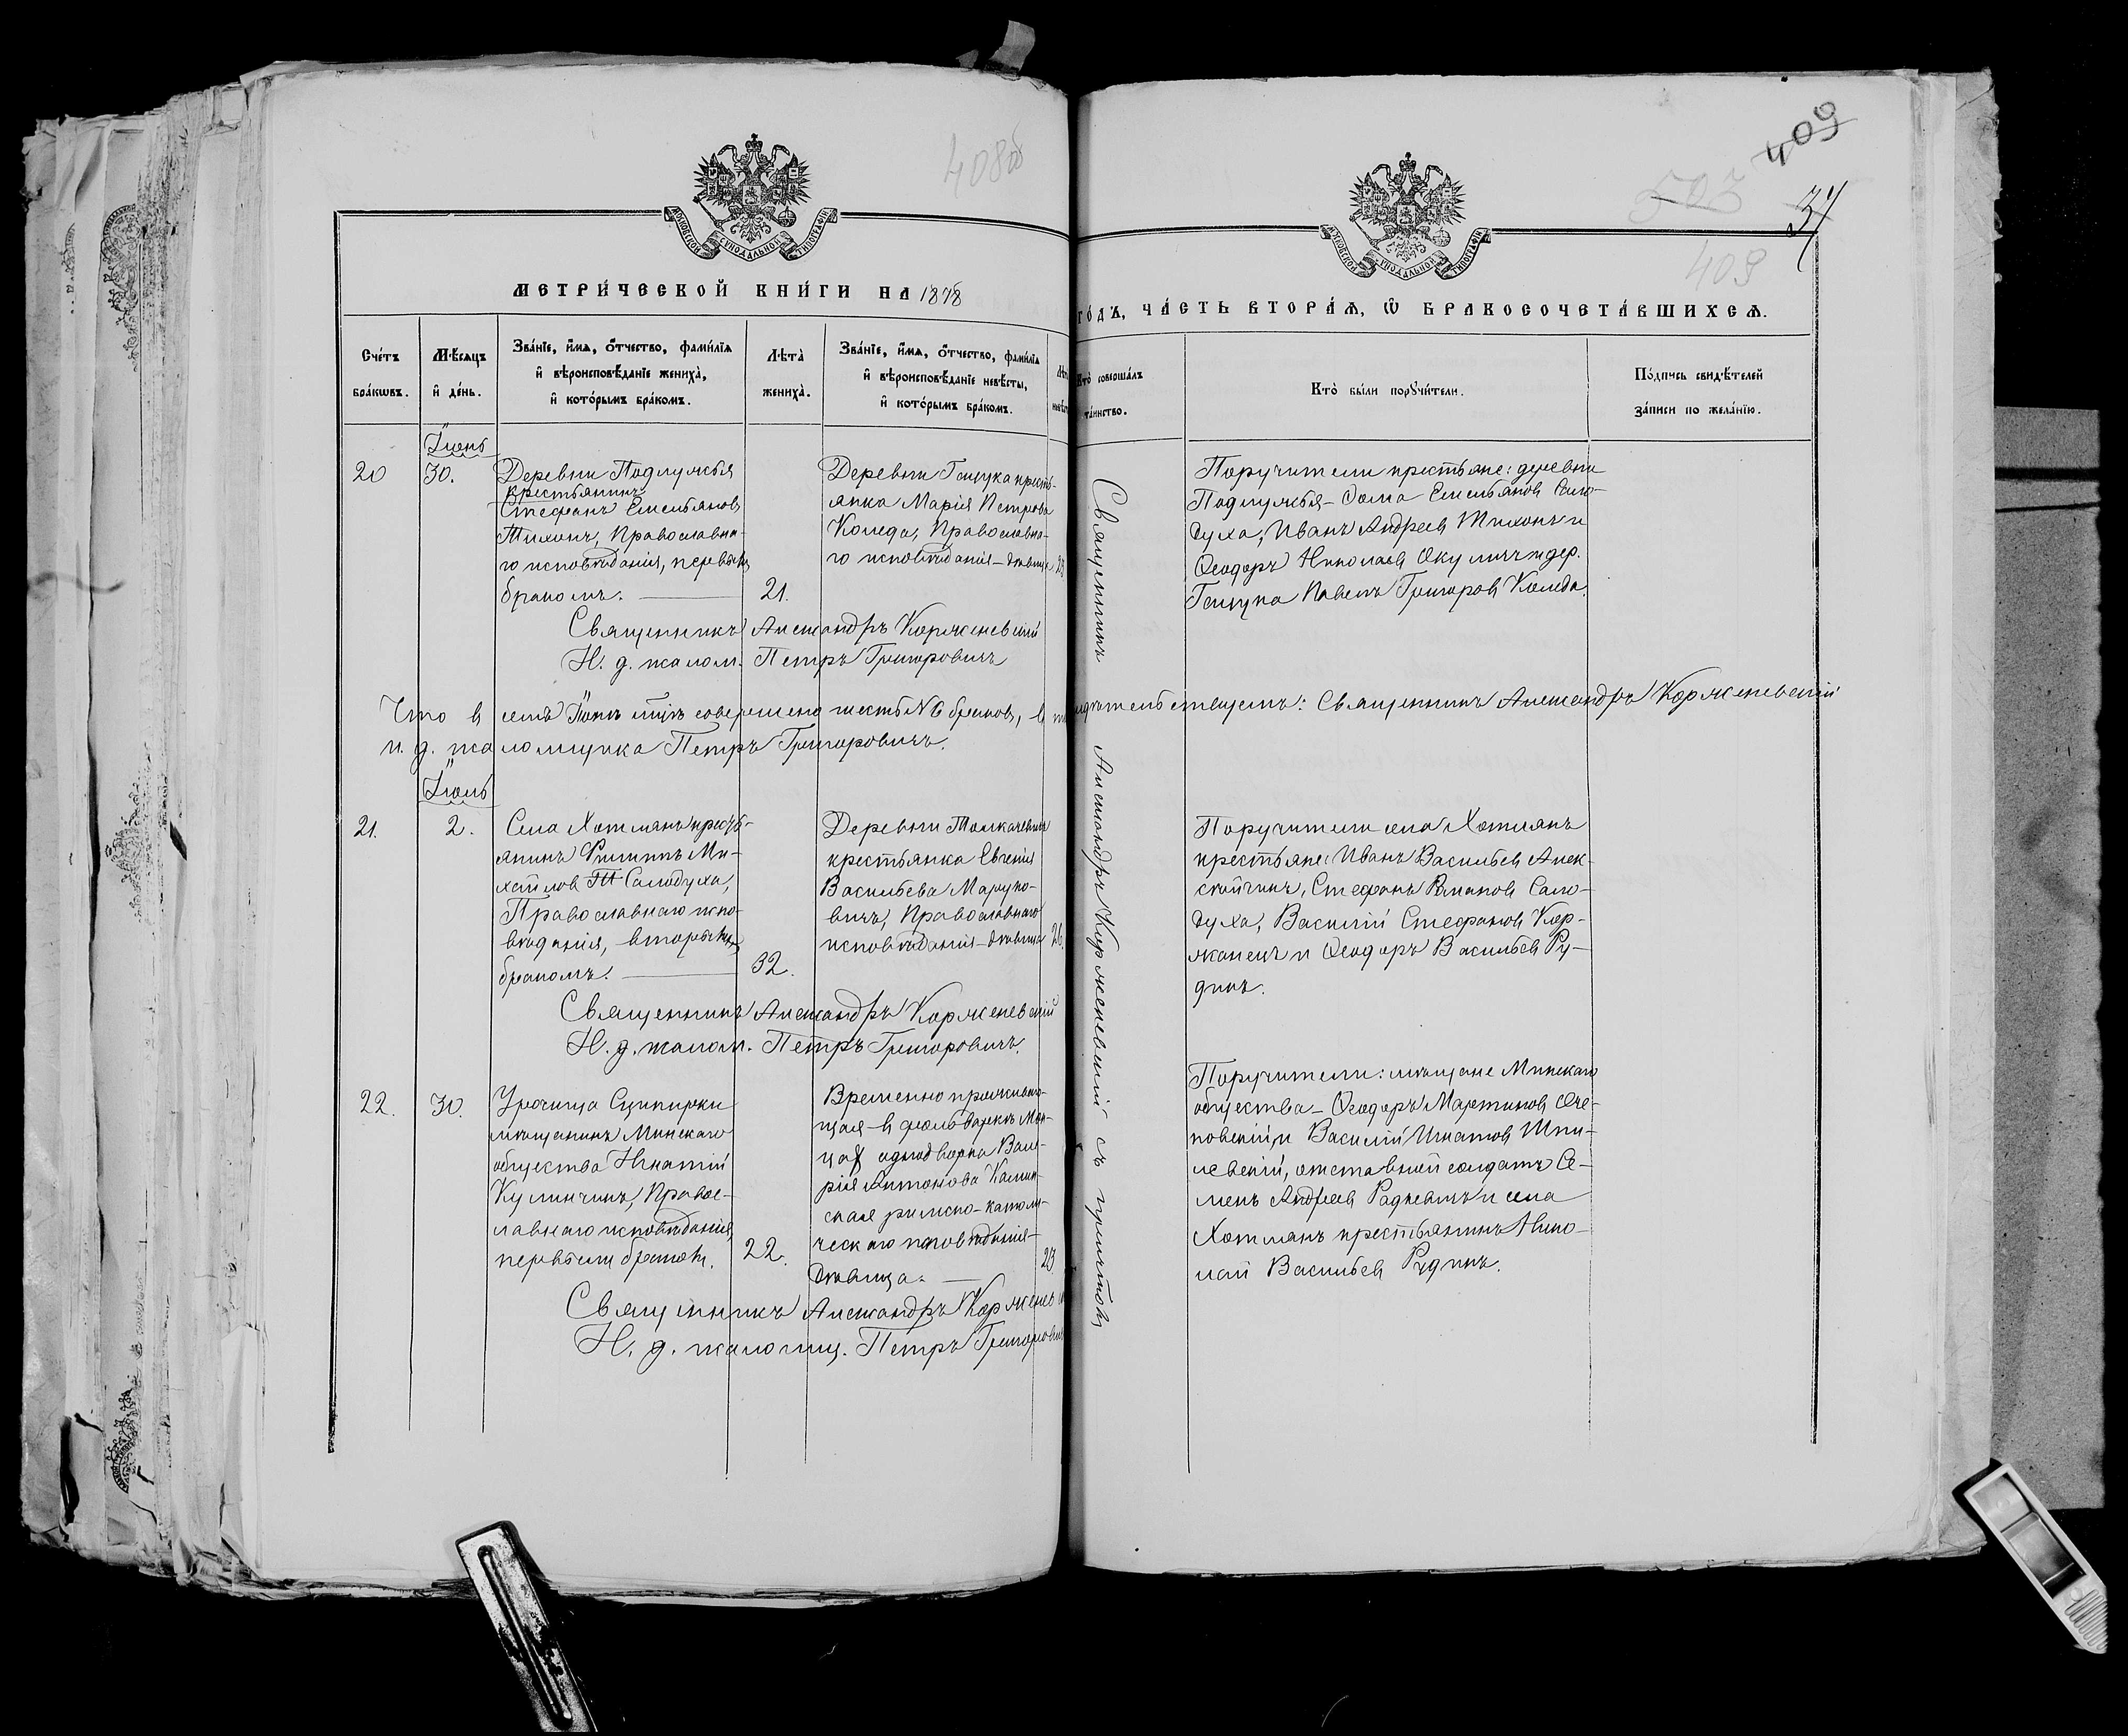 408об
409
503
34
409
МОСКОВСКОЙ СѴНОДАЛЬНОЙ ТИПОГРАФІИ
МОСКОВСКОЙ СѴНОДАЛЬНОЙ ТИПОГРАФІИ
МЕТРИ́ЧЕСКОЙ КНИ́ГИ НА 1878
ГО́ДЪ, ЧА́СТЬ ВТОРА́Ѧ, Ѡ҆ БРАКОСОЧЕТА́ВШИХСѦ.
Сче́тъ бра́кωвъ.
Мѣ́сѧцъ и҆ де́нь.
Зва́нїе, и҆́мѧ, ѻ҆́тчество, фами́лїѧ
и҆ вѣроисповѣ́данїе жениха̀,
и҆ кото́рымъ бра́комъ.
Лѣ́та̀ жениха̀.
Зва́нїе, и҆́мѧ, ѻ҆́тчество, фами́лїѧ
и҆ вѣроисповѣ́данїе невѣ́сты,
и҆ кото́рымъ бра́комъ.
Кто̀ соверша́лъ та́инство.
Кто̀ бы́ли порꙋчи́тели.
По́дпись свидѣ́телей
за́писи по жела́нїю.
Іюнь
20
30.
Деревни Подлужья
крестьянинъ
Стефанъ Емельяновъ
Тихонъ, Православна-
го исповѣданія, первымъ
бракомъ.
21.
Деревни Гацука кресть-
янка Марія Петрова
Коледа, Православна-
го исповѣданія – дѣвица
23
Поручители крестьяне: деревни
Подлужья – Ѳома Емельяновъ Сало-
духа, Иванъ Андреевъ Тихонъ и
Ѳеодоръ Николаевъ Окуличъ и дер.
Гацука Павелъ Григоровъ Коледа.
Священникъ Александръ Корженевскій
И. д. псалом. Петръ Григоровичъ
Священникъ Александръ Корженевскій съ причтомъ
Что въ семъ Іюнѣ мцѣ совершено шесть №6 браковъ, въ томъ свидѣтельствуемъ: Священникъ Александръ Корженевскій
и. д. псаломщика Петръ Григоровичъ.
Іюль
21.
2.
Села Хотлянъ кресть-
янинъ Филиппъ Ми-
хайловъ Салодуха,
Православнаго испо-
вѣданія, вторымъ
бракомъ.
32.
Деревни Толкачевичъ
крестьянка Евгенія
Васильева Маруко-
вичъ, Православнаго
исповѣданія – дѣвица
26.
Поручители села Хотлянъ
крестьяне: Иванъ Васильевъ Алек-
сейчикъ, Стефанъ Романовъ Сало-
духа, Василій Стефановъ Кор-
жанецъ и Ѳеодоръ Васильевъ Ру-
дикъ.
Священникъ Александръ Корженевскій
И. д. псалом. Петръ Григоровичъ.
22.
30.
Урочища Сципирки
мѣщанинъ Минскаго
общества Игнатій
Куликчикъ, Правос-
лавнаго исповѣданія,
первымъ бракомъ.
22.
Временно прожива-
щая въ фольваркѣ
однодворка Вале-
рія Антонова Калин-
ская римско-католи-
ческаго исповѣданія –
дѣвица.
23
Поручители: мѣщане Минскаго
общества – Ѳеодоръ Мартиновъ
и Василій Игнатовъ Шпи-
левскій, отставной солдатъ Се-
менъ Андреевъ Радкевичъ и села
Хотлянъ крестьянинъ Нико-
лай Васильевъ Рудикъ.
Священникъ Александръ Корженевскій
И. д. псаломщ. Петръ Григоровичъ